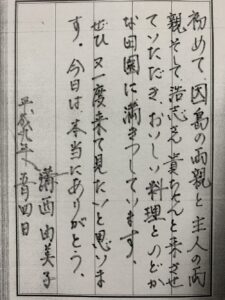 初めて、因島の両親と主人の両
親そして浩志さん、貴ちゃんと来させ
ていただき、おいしい料理とのどか
な田園に満きつしています。
ぜひ又一度来て見たいと思いま
す。今日は本当にありがとう。
平成九年 五月四日
西由美子